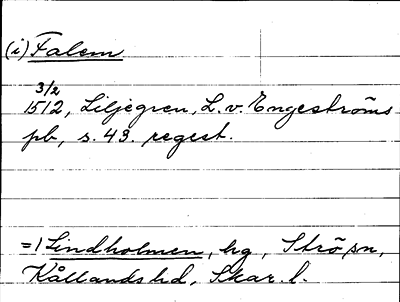 (i) Falem
3/2
1512, Liljegren, L. v. Engeströms
pb, s. 43. regest.
= 1 Lindholmen, hg, Strö sn,
Kållands hd, Skar. l.